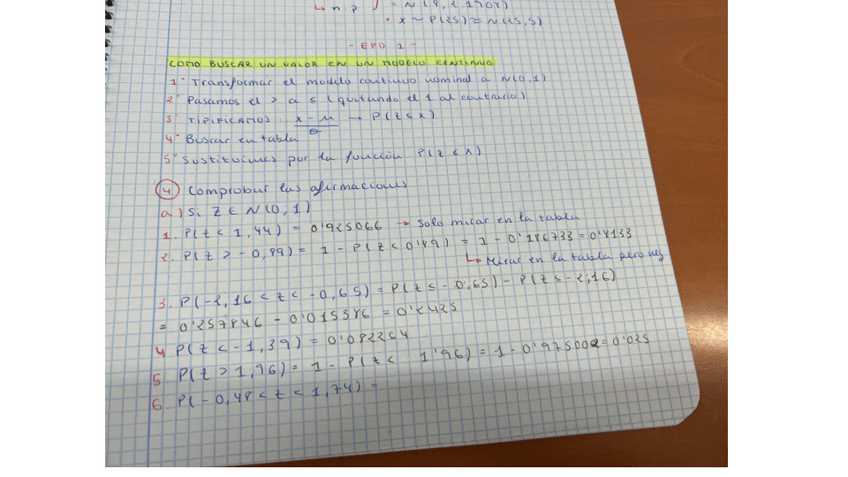 n p = N(
• x ~ P(25) ≈ N(25,5)
- EPD 1 -
COMO BUSCAR UN VALOR EN UN MODELO CONTINUO
1º Transformar el modelo continuo nominal a N(0,1)
2º Pasamos el > a ≤ (quitando el 1 al contrario)
3º TIPIFICAMOS x - μ / σ → P(z ≤ x)
4º Buscar en tabla
5º Sustituimos por la función P(z < x)
4 Comprobar las afirmaciones
a) Si Z ∈ N(0,1)
1. P(z < 1,44) = 0'925066 → Solo mirar en la tabla
2. P(z > -0,89) = 1 - P(z < 0'89) = 1 - 0'186733 = 0'8133
↳ Mirar en la tabla pero
3. P(-2,16 < z < -0,65) = P(z ≤ -0,65) - P(z ≤ -2,16)
= 0'257846 - 0'015386 = 0'2425
4 P(z < -1,39) = 0'082264
5 P(z > 1,96) = 1 - P(z < 1'96) = 1 - 0'975002 = 0'025
6. P(-0,48 < z < 1,74) =